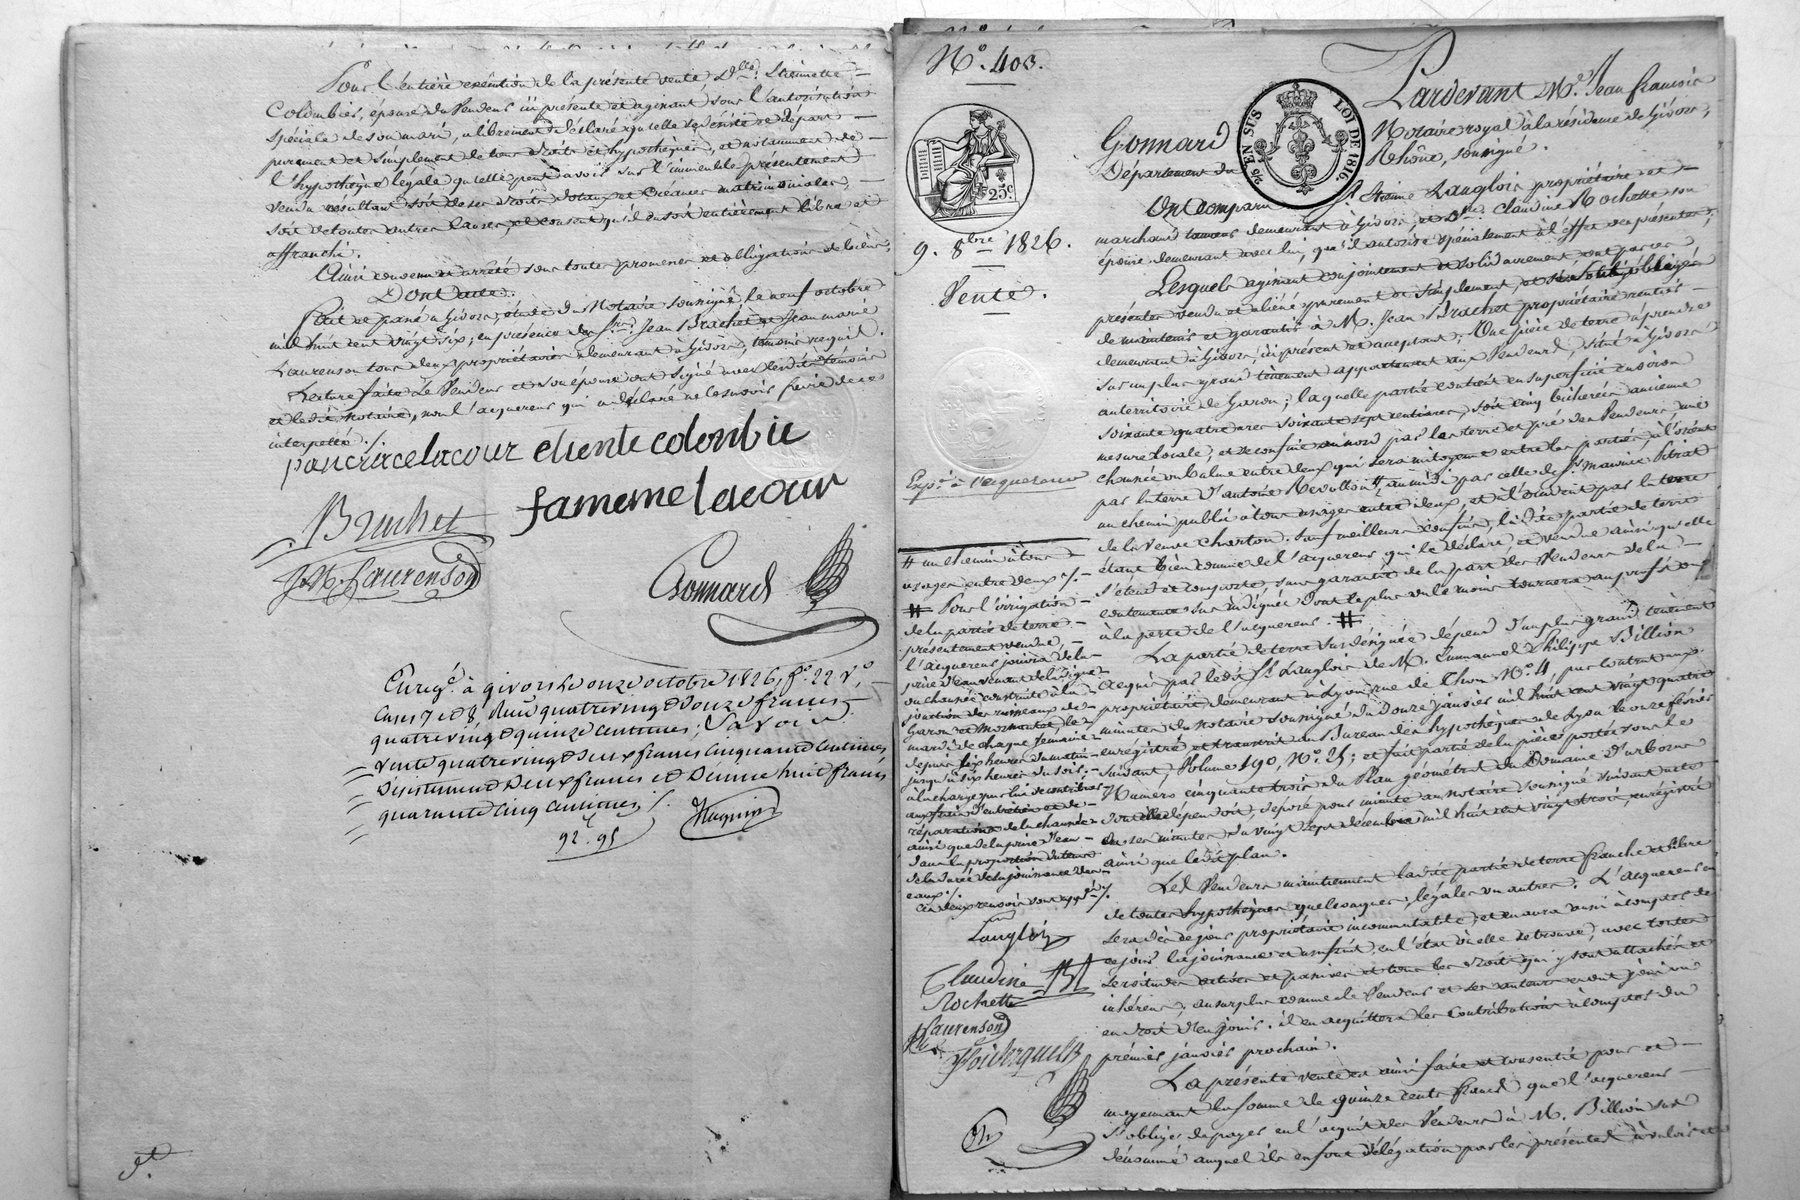 Pour l'entière exécution de la présente vente D.lle Etiennette
Colombier, épouse du Vendeur ici présente et agissant sous l'autorisation
spéciale de son mari, a librement déclaré qu'elle se départ
purement et simplement de tous droits et hypothèques, et notamment de
l'hypothèque légale qu'elle peut avoir sur l'immeuble présentement
vendu résultant soit de ses droits dotaux et créances matrimoniales,
soit de toutes autres causes, et consent qu'il en soit entièrement libre et
affranchi.
Ainsi convenu et arrêté sous toutes promesses et obligations de biens.
Dont acte.
Fait et passé à Givors, étude du Notaire soussigné, le neuf octobre
mil huit cent vingt six; en présence des Srs. Jean Brachet et Jean marie
Laurenson tous deux propriétaires demeurant à Givors, témoins requis.
Lecture faite Le Vendeur et son épouse ont signé avec lesdits témoins
et ledit Notaire, non l'acquereur qui a déclaré ne le savoir faire de ce
interpellé ./.
pancrace lacour etiente colonbie
fameme lacour
Bruchet
J.M. Laurenson
Gonnard
Enregé. à givors le onze octobre 1826, f.° 22 v.°
Cases 7 et 8, Reçu quatre vingt douze francs
quatre vingt quinze centimes; Savoir
Vente quatre vingt deux francs cinquante centimes
Désistement Deux francs et Dixme huit francs
quarante cinq centimes ./.
92. 95
N.° 403.
25.c
EN SUS
LOI DE 1816
9. 8bre 1826.
Vente.
Expé. à l'acquereur
Pardevant M.e Jean francois
Gonnard Notaire royal à la résidence de Givors,
Département du Rhône, soussigné.
Ont comparu Sr. Etienne Langlois propriétaire et
marchand demeurant à Givors, et D.e Claudine Rochette son
épouse demeurant avec lui, qu'il autorise spécialement à l'effet des présentes;
Lesquels agissant conjointement et solidairement ont par ces
présentes vendu et aliéné purement et simplement et
de maintenir et garantir à M. Jean Brachet propriétaire rentier
demeurant à Givors, ici présent et acceptant; Une pièce de terre à prendre
sur un plus grand tènement appartenant aux Vendeurs, situé à Givors
au territoire de Garon; laquelle partie contient en superficie environ
soixante quatre ares soixante sept centiares, soit cinq bicherées ancienne
mesure locale, et se confine au nord par la terre et pré des Vendeurs, une
chaussée ou balme entre deux qui sera mitoyenne entre les parties, à l'orient
par la terre d'antoine Revollon # au midi par celle de Sr. maurice Pitrat
un chemin public à tous usages entre deux, et à l'occident par la terre
de la Veuve Charton. Sauf meilleurs confins, ladite partie de terre
étant bien connue de l'acquereur qui le déclare et vendue ainsi qu'elle
s'étend et comporte, sans garantie de la part des Vendeurs de la
contenance sus indiquée dont le plus ou le moins tournera au profit ou
à la perte de l'acquereur. #
La partie de terre sus désignée dépend d'un plus grand tènement
acquis par ledit Sr. Langlois de M. Emmanuel Philippe Billion
propriétaire demeurant à Lyon rue de Thou N.° 4, par contrat aux
minutes du Notaire soussigné du Douze janvier mil huit cent vingt quatre
enregistré et transcrit au Bureau des hypothèques de Lyon le onze février
suivant, Volume 190, N.° 25; et fait partie de la pièce portée sous le
Numero cinquante trois du Plan géométral du Domaine d'urbonne
dont elle dépendoit, déposé pour minute au notaire soussigné suivant acte
en ses minutes du vingt sept décembre mil huit cent vingt trois, enregistré
ainsi que ledit plan.
Les Vendeurs maintiennent ladite partie de terre franche et libre
de toutes hypothèques quelconques, légales ou autres. L'acquereur en
sera dès ce jour propriétaire incommutable, et en aura aussi à compter de
ce jour la jouissance et usufruit, en l'état où elle se trouve, avec toutes
servitudes actives et passives et tous les droits qui y sont attachés et
inhérens, au surplus comme le Vendeur et ses auteurs en ont joui ou
eu droit d'en jouir. il en acquittera les Contributions à compter du
prémier janvier prochain.
La présente vente est ainsi faite et consentie pour et
moyennant la somme de quinze cents francs que l'acquereur
s'oblige de payer en l'acquit des Vendeurs à M. Billion sus
dénommé auquel ils en font délégation par les présentes à valoir et
# un chemin à tous
usages entre deux ./.
# Pour l'irrigation
de la partie de terre
présentement vendue,
l'acquereur jouira de la
prise d'eau venant de la digue
ou chaussée construite à la
jonction des ruisseaux de
Garon et Mornantet le
mardi de chaque semaine
depuis six heures du matin
jusqu'à six heures du soir.
à la charge par lui de contribuer
aux frais d'entretien et de
réparations de la chaussée
ainsi que de la prise d'eau
dans la proportion du tems
de la durée de la jouissance des
eaux ./.
Ces deux renvois sont appés ./.
Langlois
Claudine
Rochette
Bt
Laurenson